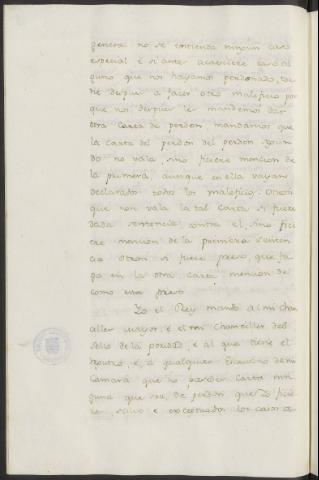 general no se entienda ningun caso
especial è si ante acaesciere caso al
guno que nos hayamos perdonado, tor
ne despues a facer otro maleficio por
que nos despues le mandemos dar
otra carta de perdon mandamos que
la carta del perdon del perdon segun
do no vala, sino ficiere mencion de
la primera, aunque en ella vayan
declarados todos los maleficios. Otrosi
que non vala la tal carta si fuere
dada sentencia contra el, sino fici
ere mencion de la primera senten
cia otrosi si fuere preso, que fa
ga en la otra carta mencion de
como era preso
Yo el Rey mando al mi chan
celler mayor, è el mi Chanciller del
sello de la poridad, è al que tiene el
è a qualquier Escrivano de mi
Camara que no pase carta nin
guna que sea de perdon que Yo ficie
re salvo è exceptuados los casos a